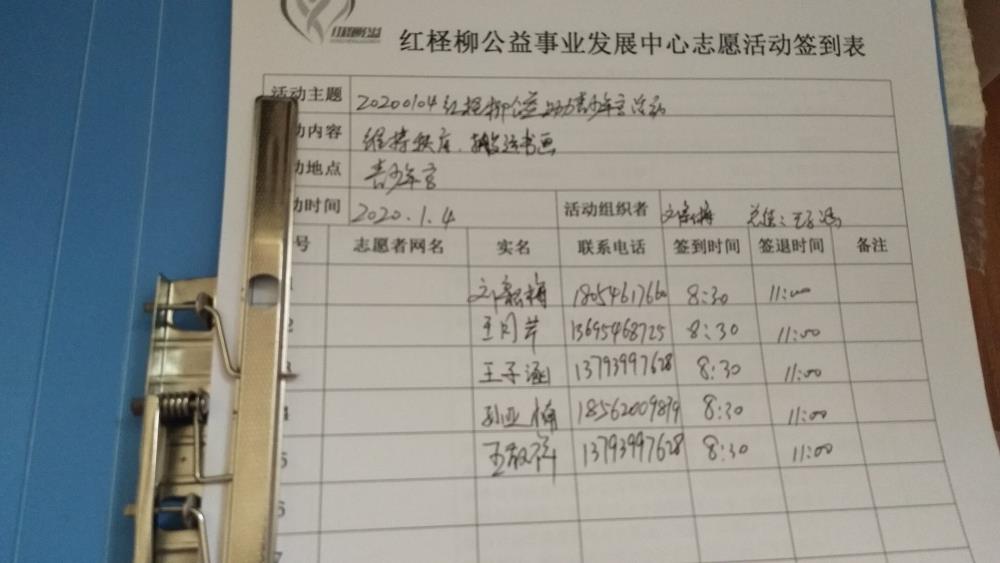 红柽柳公益事业发展中心志愿活动签到表
活动主题 20200104红柽柳公益助力青少年宫活动
动内容 维持秩序、搬运书画
动地点 青少年宫
动时间 2020.1.4 活动组织者
号 志愿者网名 实名 联系电话 签到时间 签退时间 备注
1 18054617660 8:30 11:00
2 王月芹 13695468725 8:30 11:00
3 王子涵 13793997628 8:30 11:00
4 孙亚倩 18562009879 8:30 11:00
5 王敬祥 13793997628 8:30 11:00
6
7